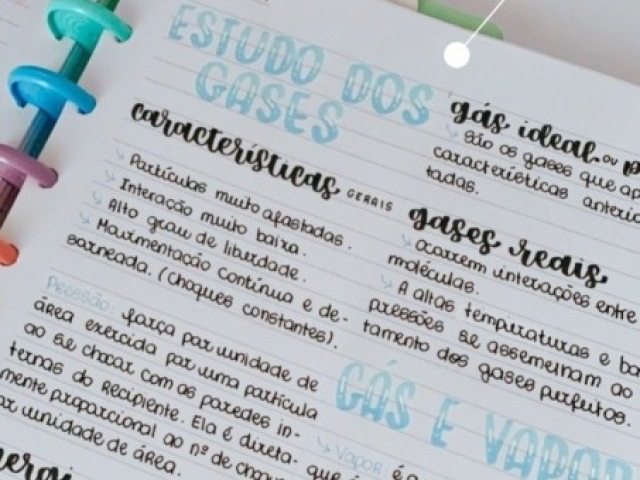 ESTUDO DOS
GASES
características GERAIS
Partículas muito afastadas.
Interação muito baixa.
Alto grau de liberdade.
Movimentação contínua e de-
sorneada. (choques constantes).
Pressão: força por unidade de
área exercida por uma partícula
ao se chocar com as paredes in-
ternas do recipiente. Ela é direta-
mente proporcional ao nº de cho
unidade de área.
gás ideal ou
São os gases que ap
características anteri
tadas.
gases reais
Ocorrem interações entre
moléculas.
A altas temperaturas e ba
pressões se assemelham ao
tamento dos gases perfeitos.
GÁS E VAPOR
Vapor: é
que